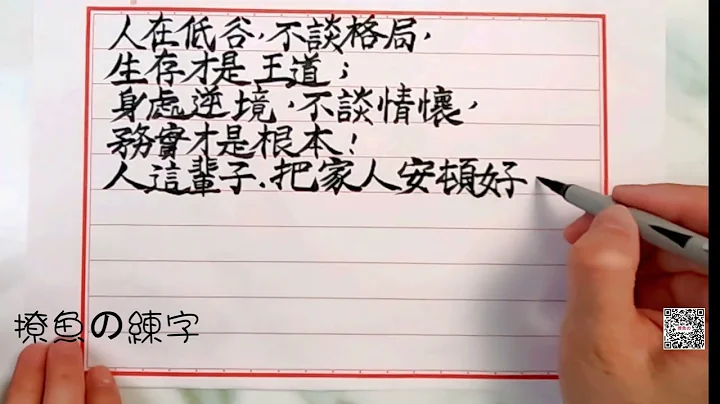 人在低谷,不談格局,
生存才是王道;
身處逆境,不談情懷,
務實才是根本!
人這輩子,把家人安頓好
撩魚の練字